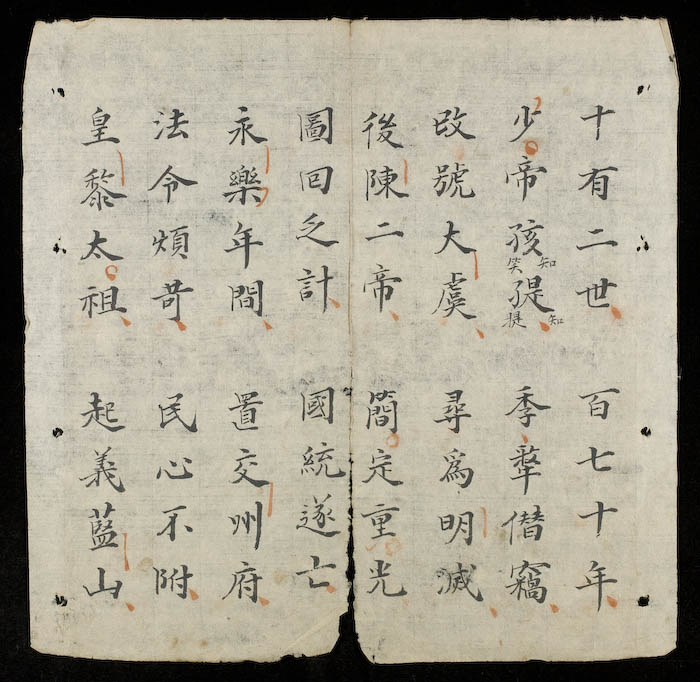 十有二世 百七十年
少帝孩提 季犛僭竊
知笑
知提
改號大虞 尋爲明滅
後陳二帝 簡定重光
圖回乏計 國統遂亡
永樂年間 置交州府
法令煩苛 民心不附
皇黎太祖 起義藍山